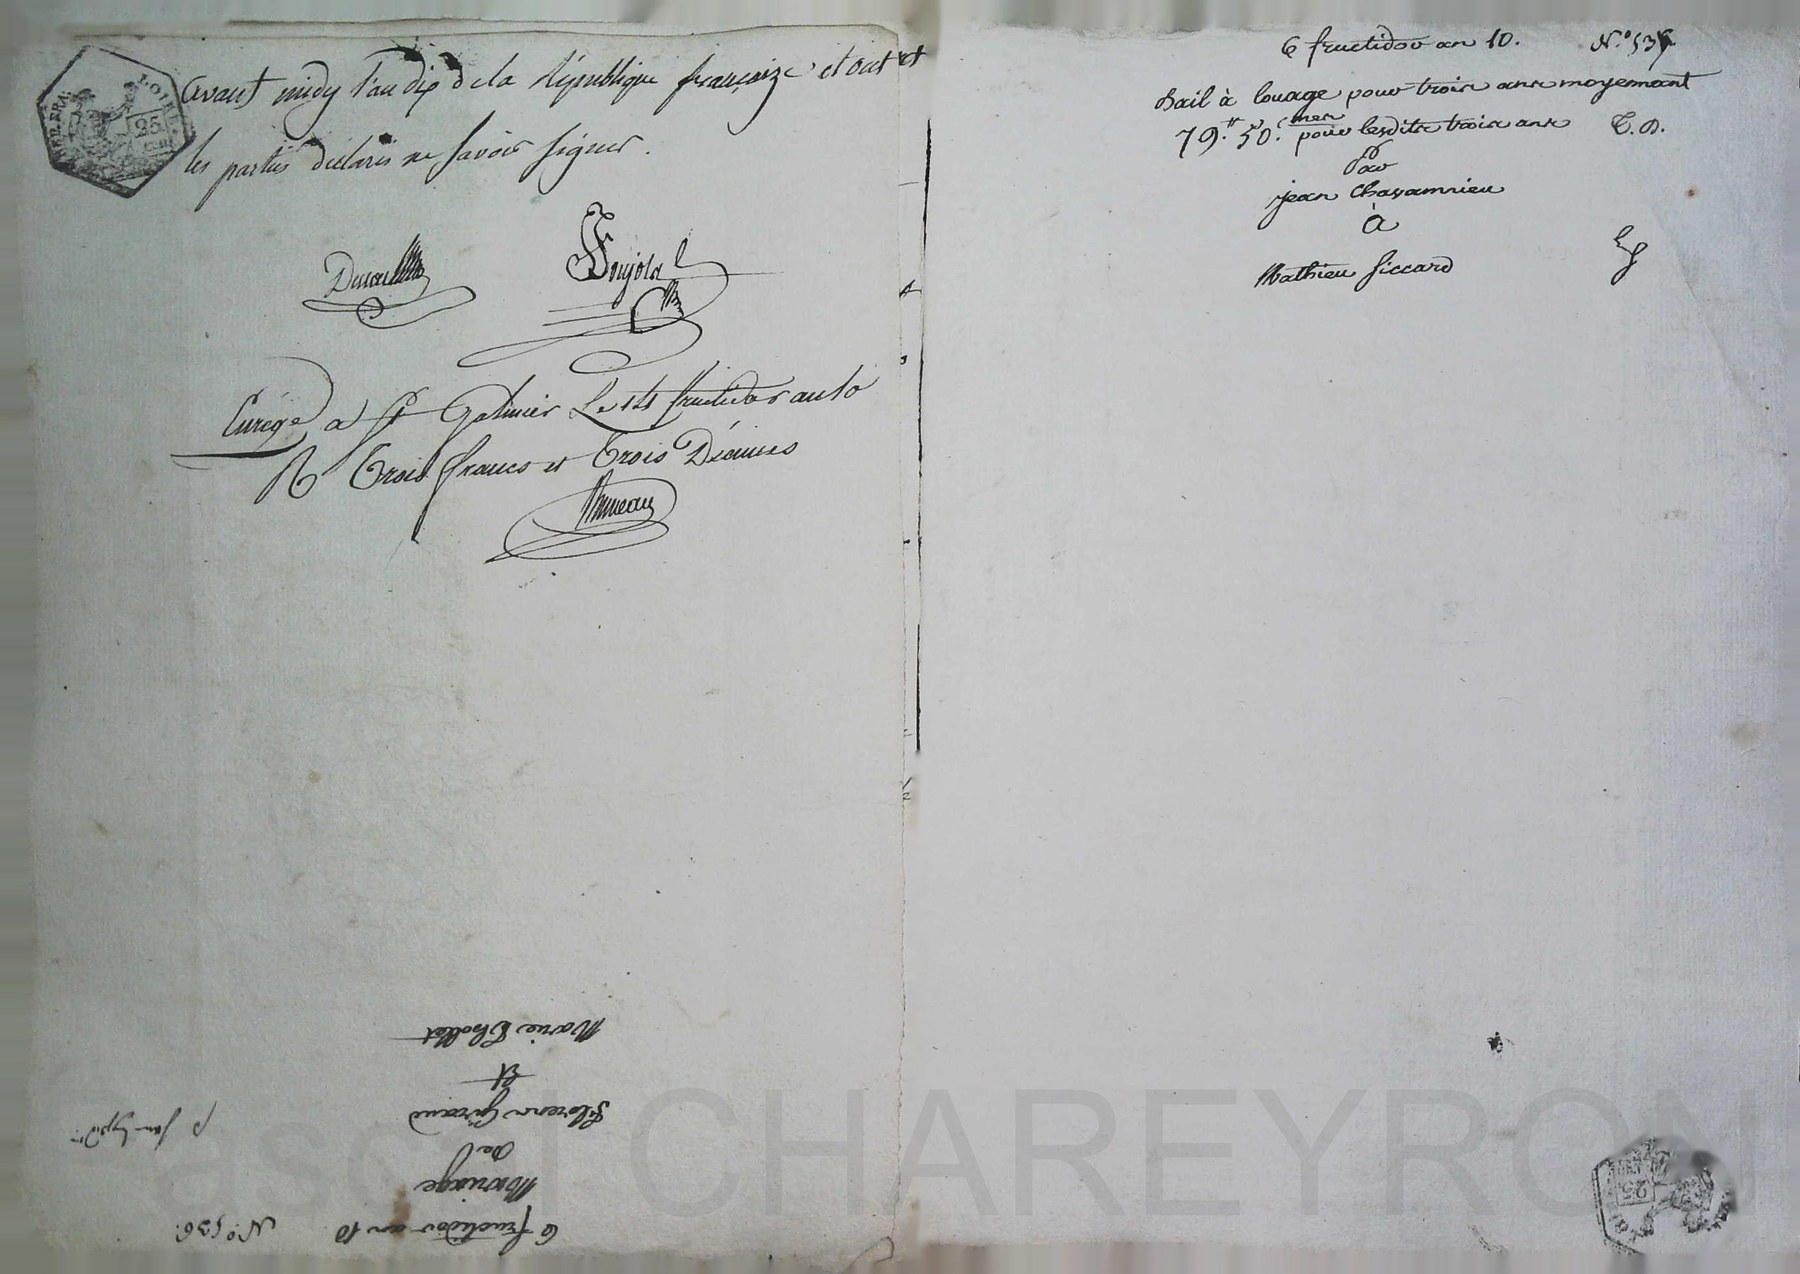 avant midy l'an dix de la République française et ont et
les parties déclaré ne savoir signer.
LOIRE
25
Enregé a St Galmier Le 14 fructidor an 10
R Trois francs et Trois Décimes
Marie Thollet
Et
Florent Giraud
de
Mariage
6 fructidor an 10. N.º 536.
6 fructidor an 10. N.º 537
Bail à louage pour trois ans moyennant
79.tt 50.c pour lesdits trois ans T. D.
Par
jean Chavamrieu
à
Mathieu Siccard
25
CHAREYRON